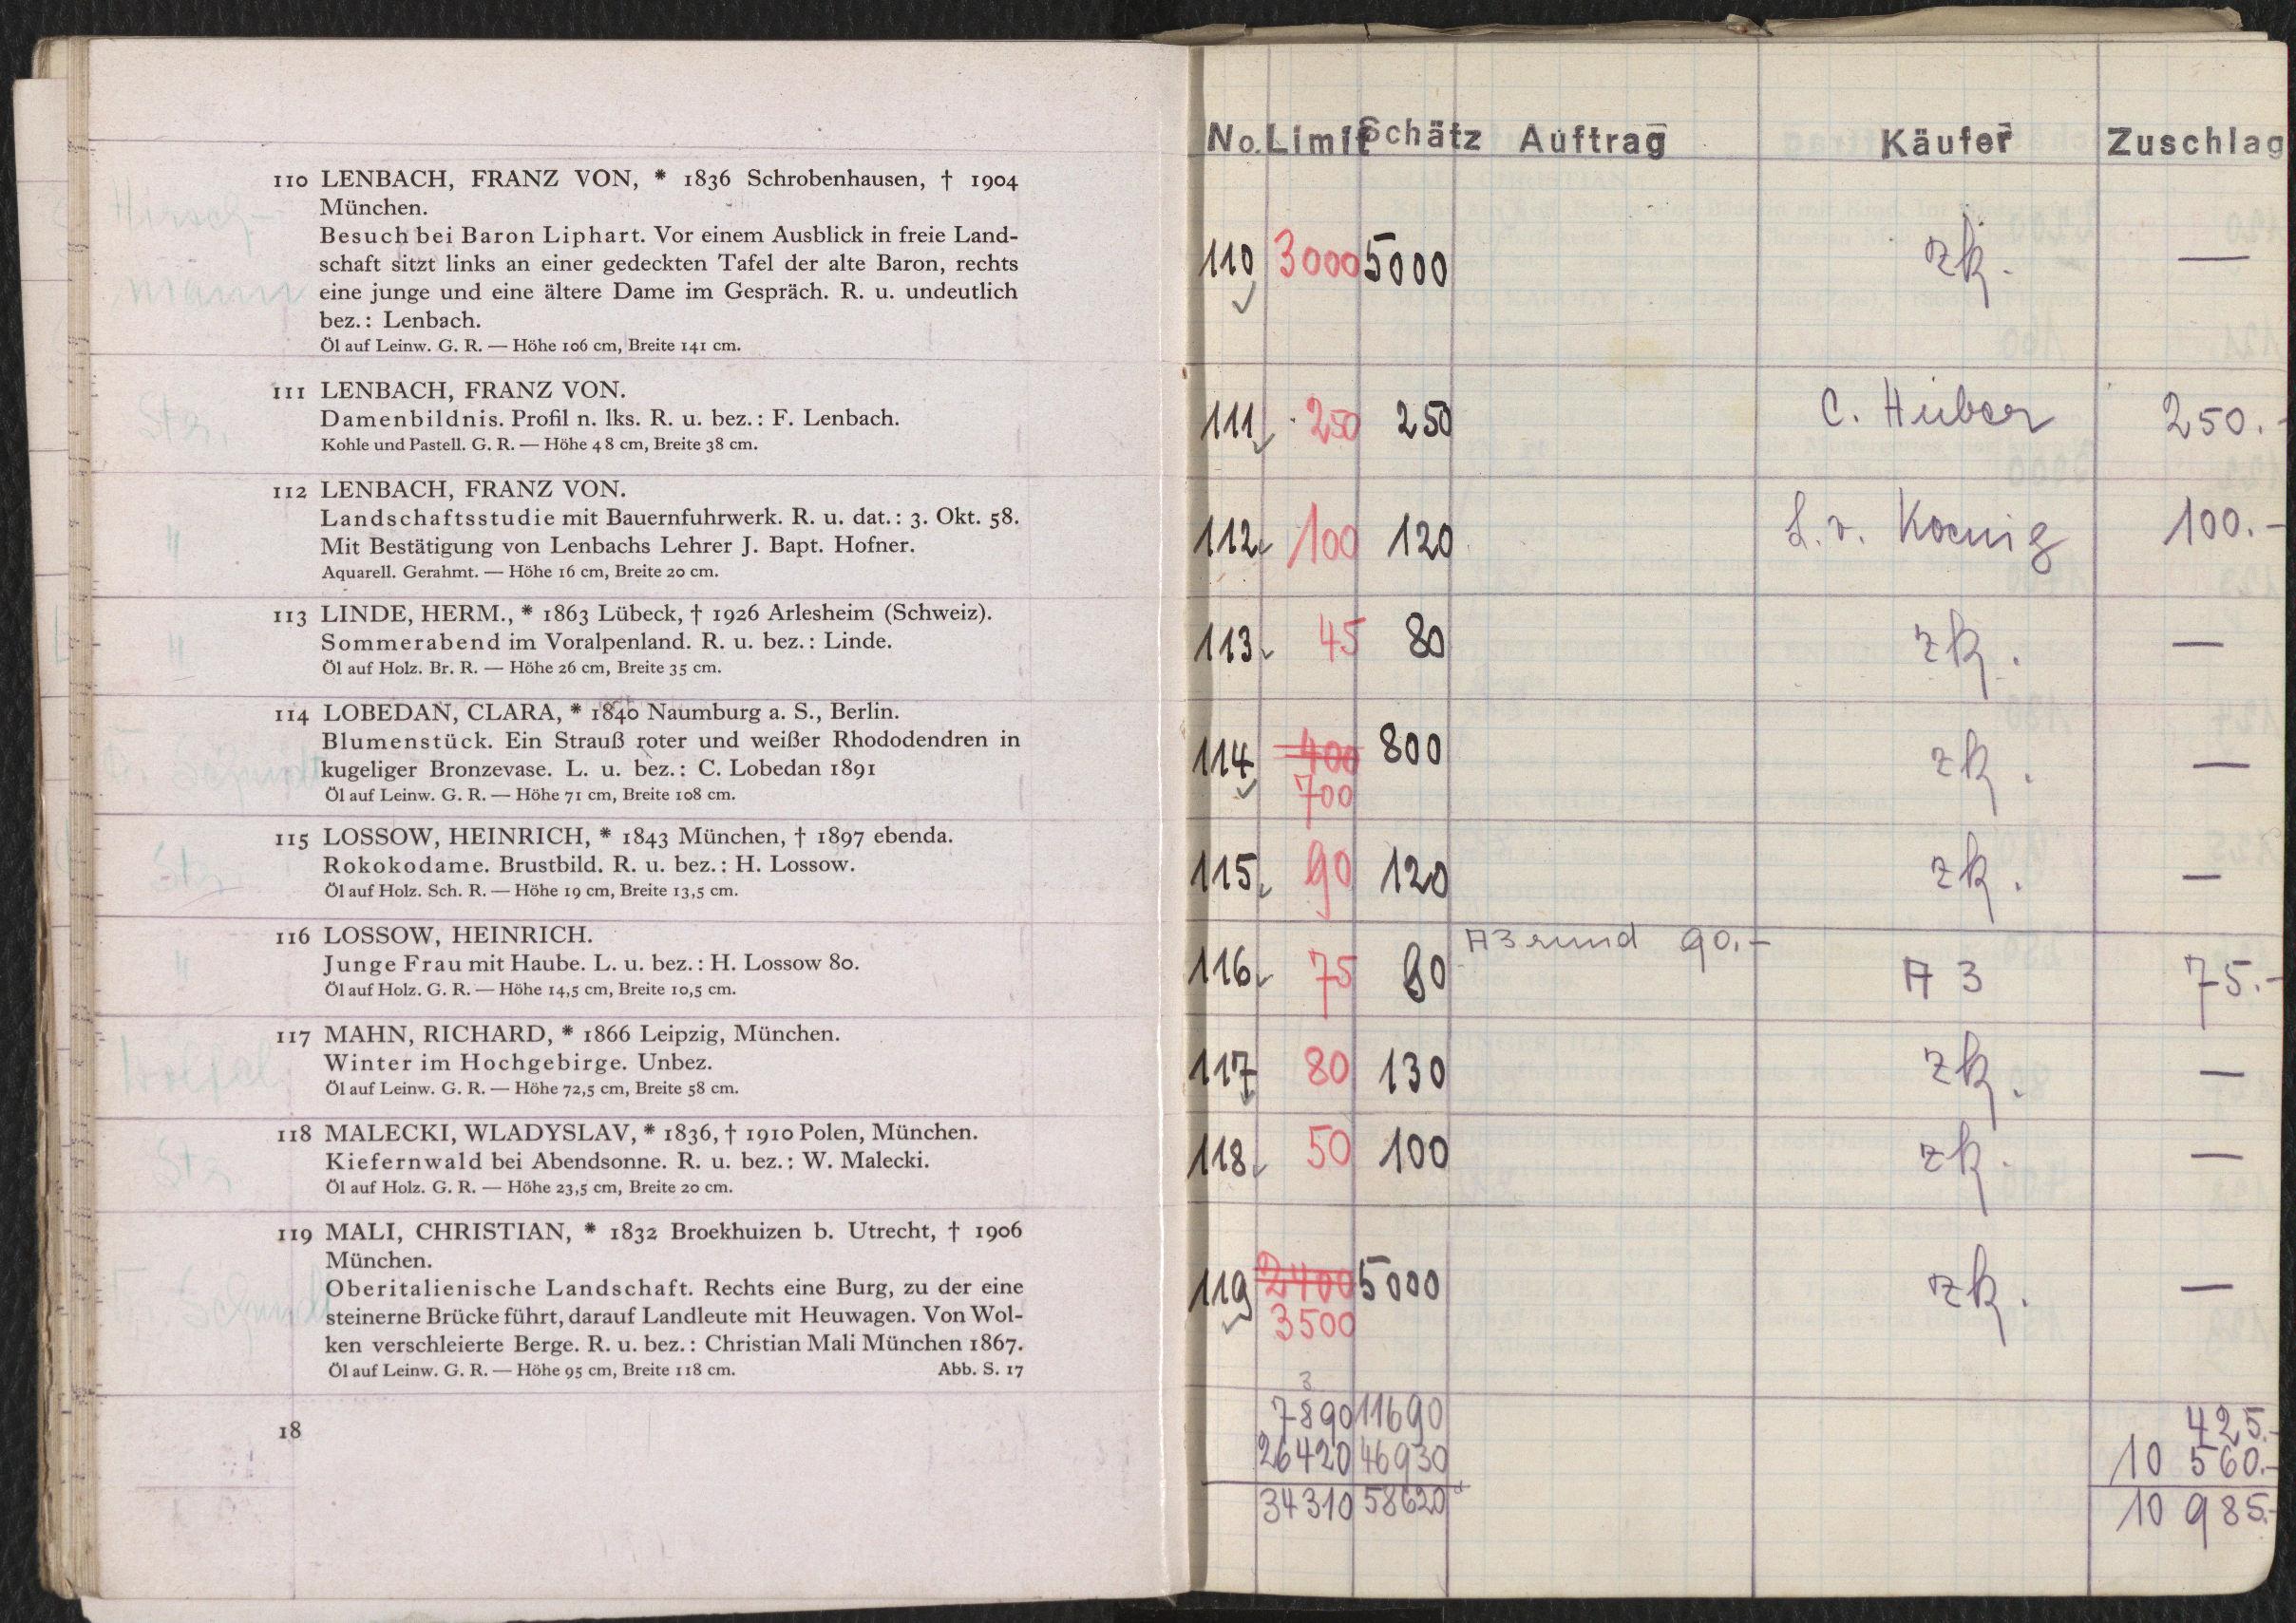 110 LENBACH, FRANZ VON, * 1836 Schrobenhausen, † 1904
München.
Besuch bei Baron Liphart. Vor einem Ausblick in freie Land-
schaft sitzt links an einer gedeckten Tafel der alte Baron, rechts
eine junge und eine ältere Dame im Gespräch. R. u. undeutlich
bez.: Lenbach.
Öl auf Leinw. G. R. — Höhe 106 cm, Breite 141 cm.
Hirsch-
mann
111 LENBACH, FRANZ VON.
Damenbildnis. Profil n. lks. R. u. bez.: F. Lenbach.
Kohle und Pastell. G. R. — Höhe 48 cm, Breite 38 cm.
Str.
112 LENBACH, FRANZ VON.
Landschaftsstudie mit Bauernfuhrwerk. R. u. dat.: 3. Okt. 58.
Mit Bestätigung von Lenbachs Lehrer J. Bapt. Hofner.
Aquarell. Gerahmt. — Höhe 16 cm, Breite 20 cm.
"
113 LINDE, HERM., * 1863 Lübeck, † 1926 Arlesheim (Schweiz).
Sommerabend im Voralpenland. R. u. bez.: Linde.
Öl auf Holz. Br. R. — Höhe 26 cm, Breite 35 cm.
"
114 LOBEDAN, CLARA, * 1840 Naumburg a. S., Berlin.
Blumenstück. Ein Strauß roter und weißer Rhododendren in
kugeliger Bronzevase. L. u. bez.: C. Lobedan 1891
Öl auf Leinw. G. R. — Höhe 71 cm, Breite 108 cm.
Schmidt
115 LOSSOW, HEINRICH, * 1843 München, † 1897 ebenda.
Rokokodame. Brustbild. R. u. bez.: H. Lossow.
Öl auf Holz. Sch. R. — Höhe 19 cm, Breite 13,5 cm.
Str.
116 LOSSOW, HEINRICH.
Junge Frau mit Haube. L. u. bez.: H. Lossow 80.
Öl auf Holz. G. R. — Höhe 14,5 cm, Breite 10,5 cm.
"
117 MAHN, RICHARD, * 1866 Leipzig, München.
Winter im Hochgebirge. Unbez.
Öl auf Leinw. G. R. — Höhe 72,5 cm, Breite 58 cm.
118 MALECKI, WLADYSLAV, * 1836, † 1910 Polen, München.
Kiefernwald bei Abendsonne. R. u. bez.: W. Malecki.
Öl auf Holz. G. R. — Höhe 23,5 cm, Breite 20 cm.
Str
119 MALI, CHRISTIAN, * 1832 Broekhuizen b. Utrecht, † 1906
München.
Oberitalienische Landschaft. Rechts eine Burg, zu der eine
steinerne Brücke führt, darauf Landleute mit Heuwagen. Von Wol-
ken verschleierte Berge. R. u. bez.: Christian Mali München 1867.
Öl auf Leinw. G. R. — Höhe 95 cm, Breite 118 cm. Abb. S. 17
Schmidt
18
No. Limit Schätz Auftrag Käufer Zuschlag
110 3000 5000 zk. —
111 250 250 C. Huber 250.-
112 100 120 L. v. Koenig 100.-
113 45 80 zk. —
114 400 800 zk. —
700
115 90 120 zk. —
A3 rund 90.-
116 75 90 A 3 75.-
117 80 130 zk. —
118 50 100 zk. —
119 2400 5000 zk. —
3500
3
7890 11690 425.-
26420 46930 10 560.-
34310 58620 10 985.-